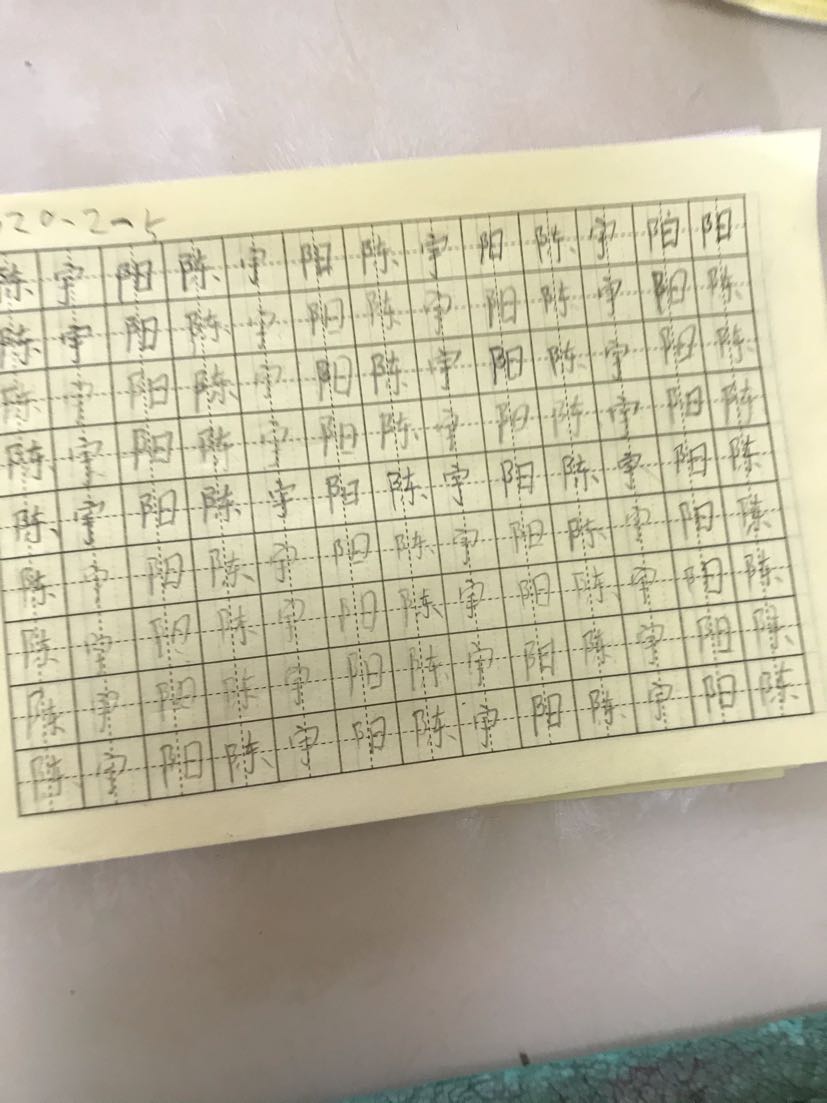 20-2-5
陈宇阳陈宇阳陈宇阳陈宇阳阳
陈宇阳陈宇阳陈宇阳陈宇阳陈
陈宇阳陈宇阳陈宇阳陈宇阳陈
陈宇阳陈宇阳陈宇阳陈宇阳陈
陈宇阳陈宇阳陈宇阳陈宇阳陈
陈宇阳陈宇阳陈宇阳陈宇阳陈
陈宇阳陈宇阳陈宇阳陈宇阳陈
陈宇阳陈宇阳陈宇阳陈宇阳陈
陈宇阳陈宇阳陈宇阳陈宇阳陈